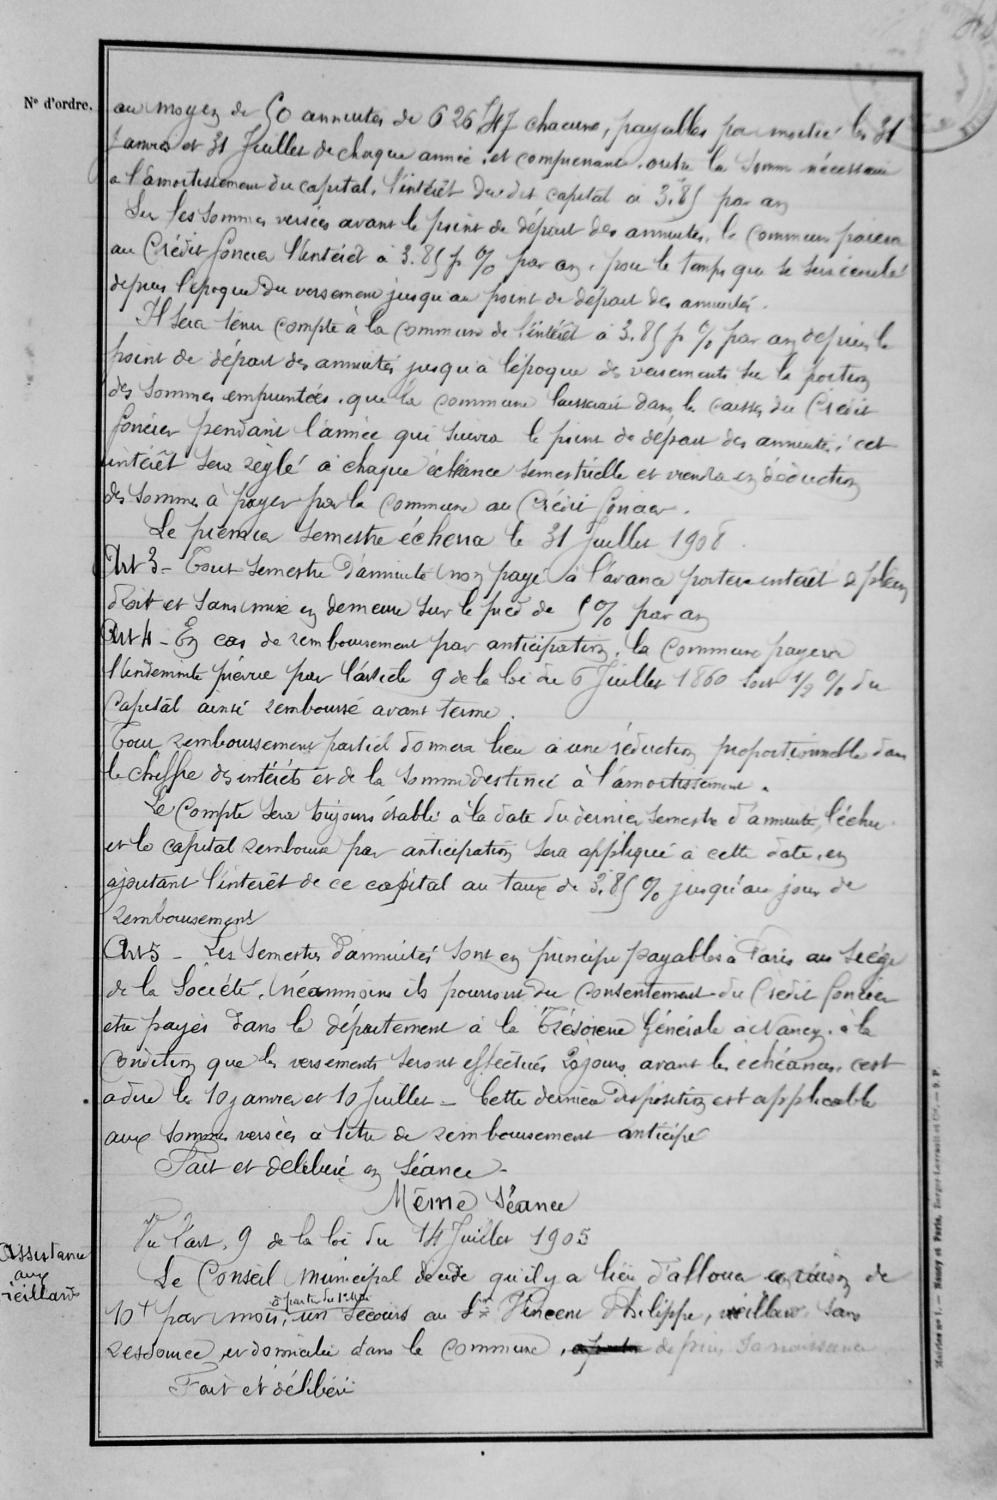 N° d'ordre.
au moyen de 50 annuités de 626 f 47 chacune, payables par moitié les 31
Janvier et 31 Juillet de chaque année, et comprenant, outre la somme nécessaire
a l'amortissement du capital, l'intérêt du dit capital à 3.85 par an
Sur les sommes versées avant le point de départ des annuités, la commune paiera
au Crédit foncier l'intérêt à 3.85 p % par an, pour le temps qui se sera écoulé
depuis l'époque du versement jusqu'au point de départ des annuités.
Il sera tenu compte à la commune de l'intérêt à 3.85 p % par an depuis le
point de départ des annuités jusqu'à l'époque des versements sur la portion
des sommes empruntées, que la commune laisserait dans la caisse du Crédit
foncier pendant l'année qui suivra le point de départ des annuités; cet
intérêt sera règlé à chaque échéance semestrielle et viendra en déduction
des sommes à payer par la commune au Crédit foncier.
Le premier semestre écherra le 31 Juillet 1908.
Art 3 - Tout semestre d'annuité non payé à l'avance portera intérêt de plein
droit et sans mise en demeure sur le pied de 5 % par an
Art 4 - En cas de remboursement par anticipation, la Commune payera
l'indemnité prévue par l'article 9 de la loi du 6 Juillet 1860 soit 1/2 % du
Capital ainsi remboursé avant terme.
Tout remboursement partiel donnera lieu à une réduction proportionnelle dans
le chiffre des intérêts et de la somme destinée à l'amortissement.
Le Compte sera toujours établi à la date du dernier semestre d'annuité échu
et le capital remboursé par anticipation sera appliqué à cette date, en
ajoutant l'intérêt de ce capital au taux de 3.85 % jusqu'au jour de
remboursement
Art 5 - Les semestres d'annuités sont en principe payables à Paris au siège
de la Société. Néanmoins ils pourront du consentement du Crédit foncier
etre payés dans le département à la Trésorerie Générale à Nancy, à la
Condition que les versements seront effectués 20 jours avant les échéances, c'est
à dire les 10 janvier et 10 Juillet - Cette dernière disposition est applicable
aux sommes versées à titre de remboursement anticipé
Fait et délibéré en séance -
Même Séance
Vu l'art. 9 de la loi du 14 Juillet 1905
Assistance
aux
vieillards
Le Conseil Municipal décide qu'il y a lieu d'allouer en raison de
à partir du 1er
10 f par mois, un secours au Sr Vincent Philippe, vieillard sans
ressource, et domicilié dans la commune, depuis sa naissance
Fait et délibéré
Nancy et Paris, Berger-Levrault et Cie.